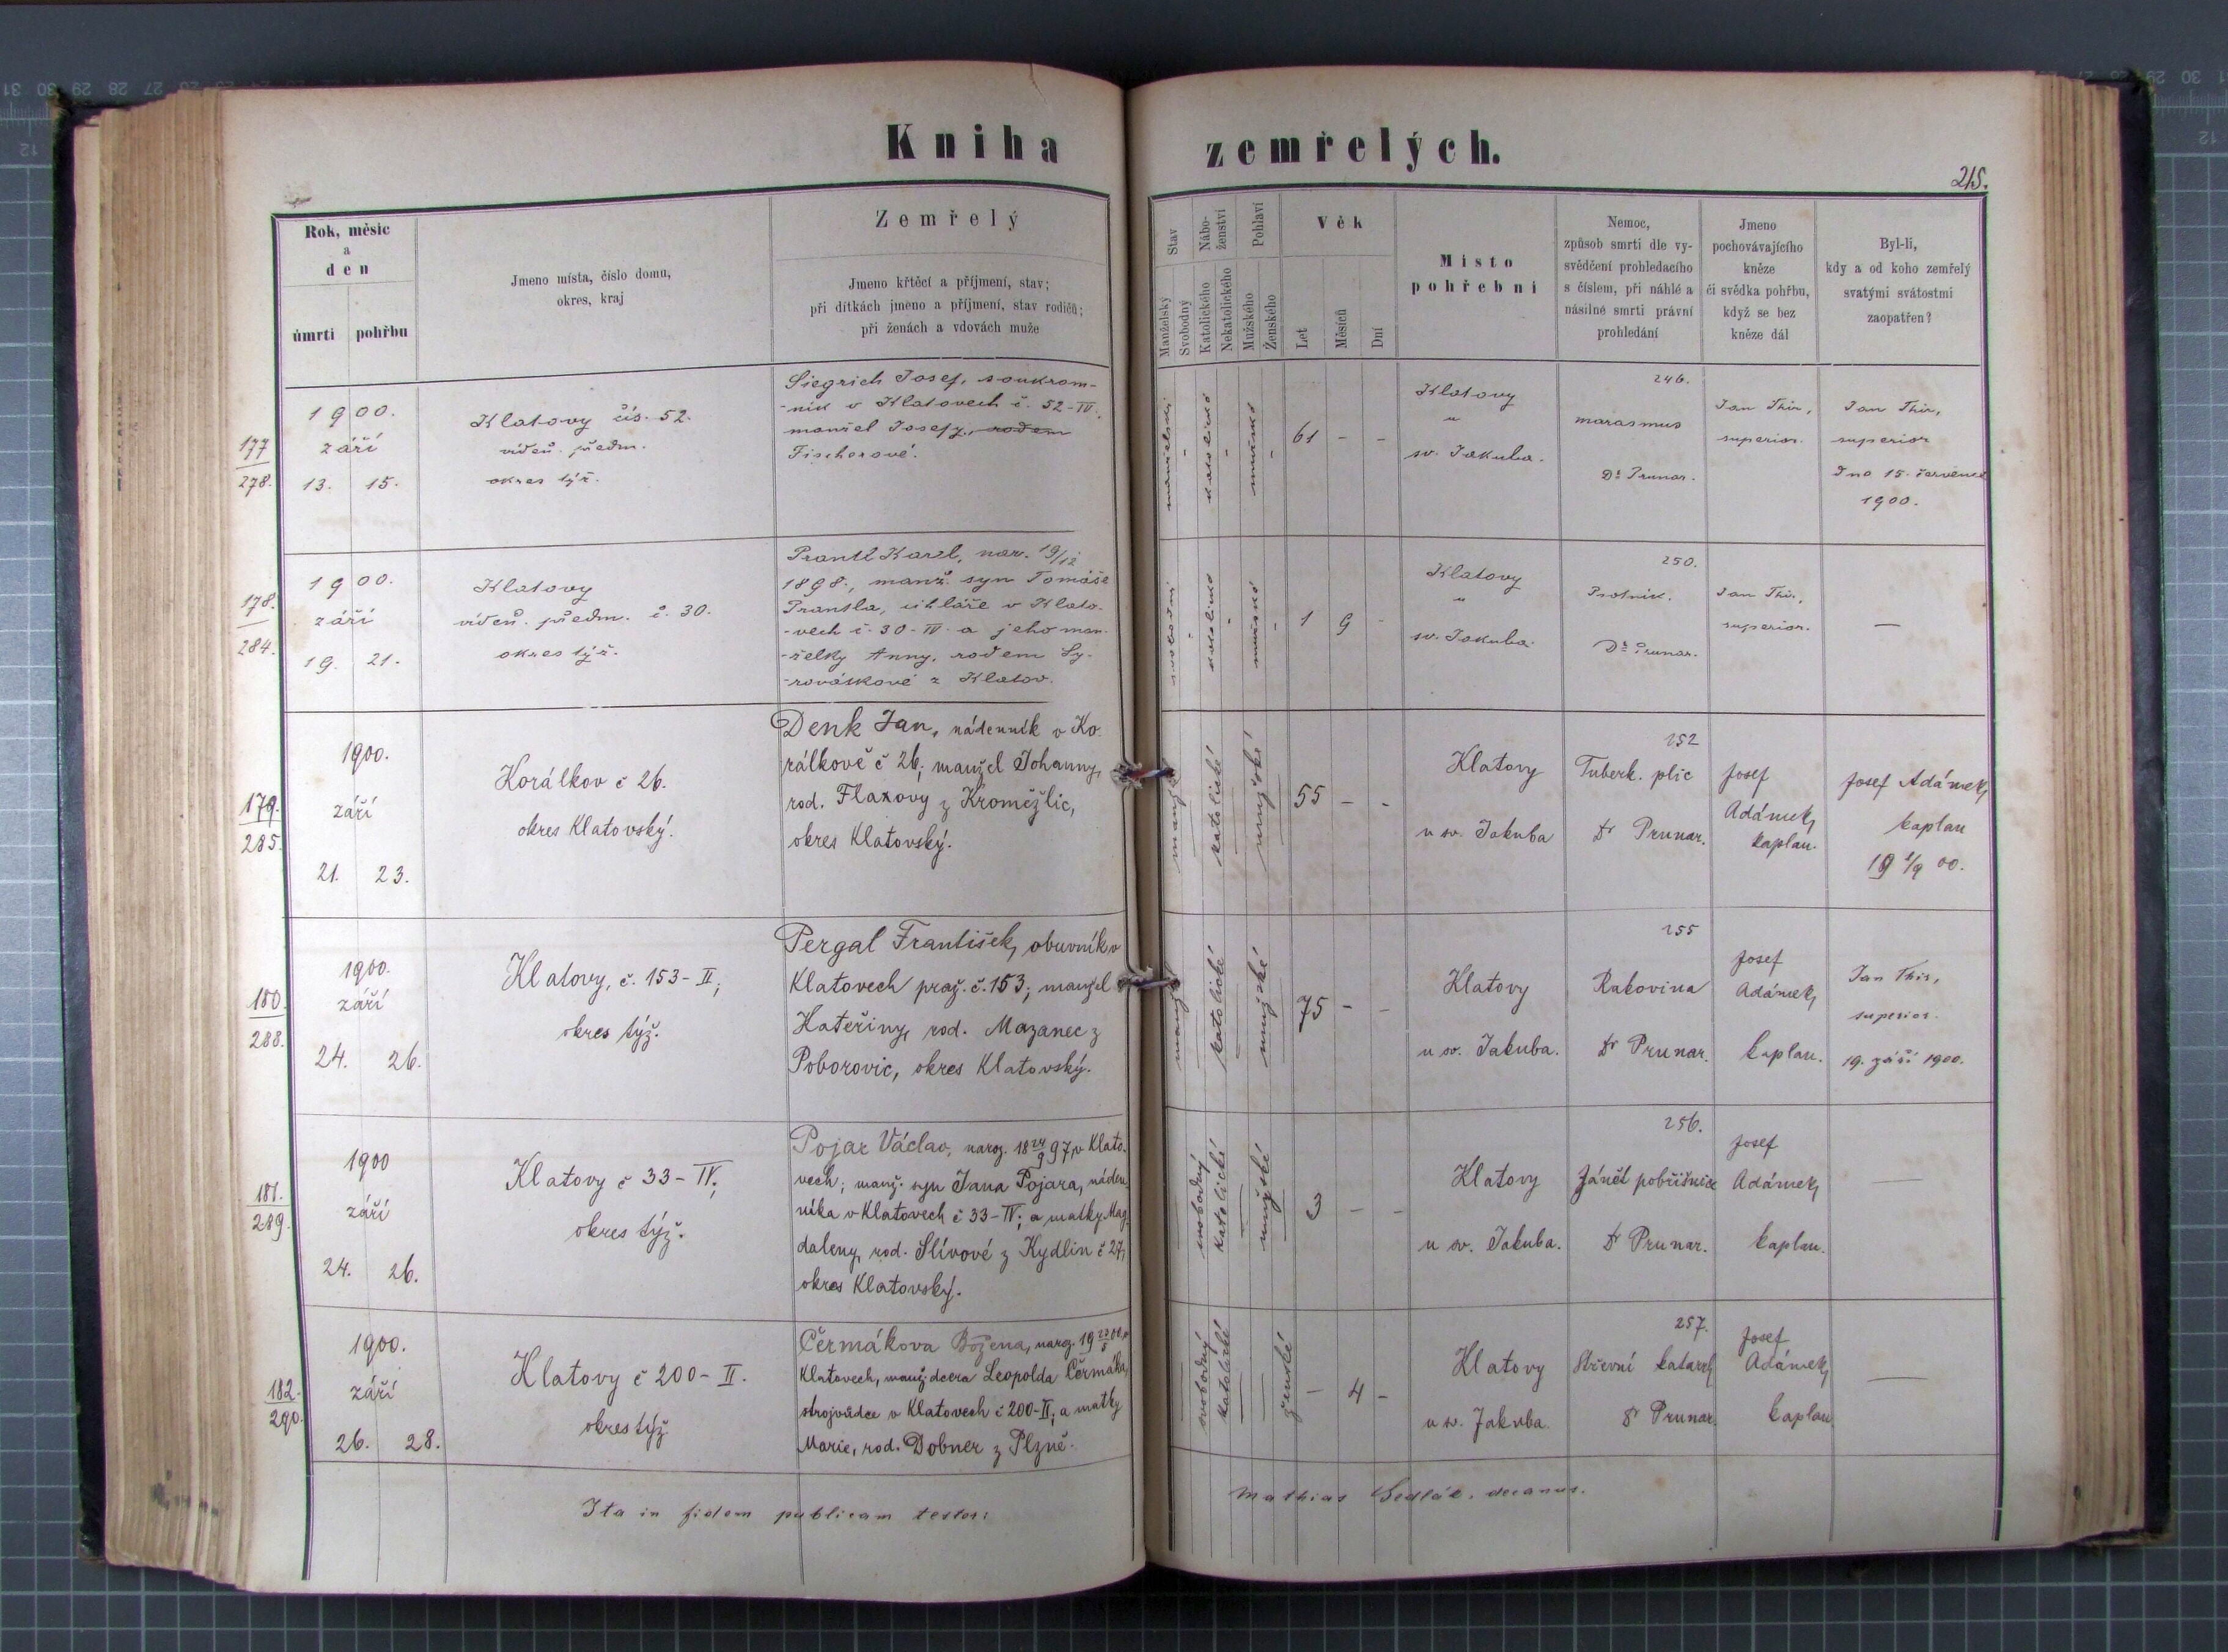 Kniha zemřelých.
215.
Rok, měsíc
a
den
úmrtí pohřbu
Jmeno místa, číslo domu,
okres, kraj
Zemřelý
Jmeno křtěcí a příjmení, stav;
při dítkách jmeno a příjmení, stav rodičů;
při ženách a vdovách muže
Stav
Manželský
Svobodný
Nábo-
ženství
Katolického
Nekatolického
Pohlaví
Mužského
Ženského
Věk
Let
Měsíců
Dní
Místo
pohřební
Nemoc,
způsob smrti dle vy-
svědčení prohledacího
s číslem, při náhlé a
násilné smrti právní
prohledání
Jmeno
pochovávajícího
kněze
či svědka pohřbu,
když se bez
kněze dál
Byl-li,
kdy a od koho zemřelý
svatými svátostmi
zaopatřen?
177
278.
1900.
září
13. 15.
Klatovy čís. 52.
víďeň. předm.
okres týž.
Siegrich Josef, soukrom-
-ník v Klatovech č. 52-IV.,
manžel Josefy, rodem
Fischerové.
manželský
katolické
mužské
61 - -
Klatovy
u
sv. Jakuba.
246.
marasmus
Dr Prunar.
Jan Thir,
superior.
Jan Thir,
superior
Dno 15. července
1900.
178.
284.
1900.
září
19. 21.
Klatovy
víďeň. předm. č. 30.
okres týž.
Prantl Karel, nar. 19/12
1898., manž. syn Tomáše
Prantla, cihláře v Klato-
-vech č. 30-IV. a jeho man-
-želky Anny, rodem Sy-
-rovátkové z Klatov.
svobodný
katolické
mužské
1 9 -
Klatovy
u
sv. Jakuba.
250.
Psotník.
Dr Prunar.
Jan Thir,
superior.
—
179.
285.
1900.
září
21. 23.
Korálkov č 26.
okres Klatovský.
Denk Jan, nádenník v Ko-
rálkově č 26, manžel Johanny,
rod. Flaxovy z Kroměžlic,
okres Klatovský.
katolické
mužské
55 - -
Klatovy
u sv. Jakuba
252
Tuberk. plic
Dr Prunar.
Josef
Adámek,
kaplan.
Josef Adámek,
kaplan
19 1/9 00.
180.
288.
1900.
září
24. 26.
Klatovy, č. 153-II;
okres týž.
Pergal František, obuvník v
Klatovech praž. č. 153; manžel
Kateřiny, rod. Mazanec z
Poborovic, okres Klatovský.
katolické
mužské
75 - -
Klatovy
u sv. Jakuba.
255
Rakovina
Dr Prunar.
Josef
Adámek,
kaplan.
Jan Thir,
superior.
19. září 1900.
181.
289.
1900
září
24. 26.
Klatovy č 33-IV;
okres týž.
Pojar Václav, naroz. 18 24/9 97, v Klato-
vech; manž. syn Jana Pojara, náden-
níka v Klatovech č 33-IV; a matky Mag-
daleny, rod. Slívové z Kydlin č 27,
okres Klatovský.
svobodný
katolické
mužské
3 - -
Klatovy
u sv. Jakuba.
256.
Zánět pobřišnice
Dr Prunar.
Josef
Adámek,
kaplan.
—
182.
290.
1900.
září
26. 28.
Klatovy č 200-II.
okres týž.
Čermákova Božena, naroz. 19 23/5 00, v
Klatovech, manž. dcera Leopolda Čermáka,
strojvůdce v Klatovech č 200-II; a matky
Marie, rod. Dobner z Plzně.
svobodný
katolické
ženské
- 4 -
Klatovy
u sv. Jakuba.
257.
Střevní katarrh
Dr Prunar.
Josef
Adámek,
kaplan
—
Ita in fidem publicam testor: Mathias Sedlák, decanus.